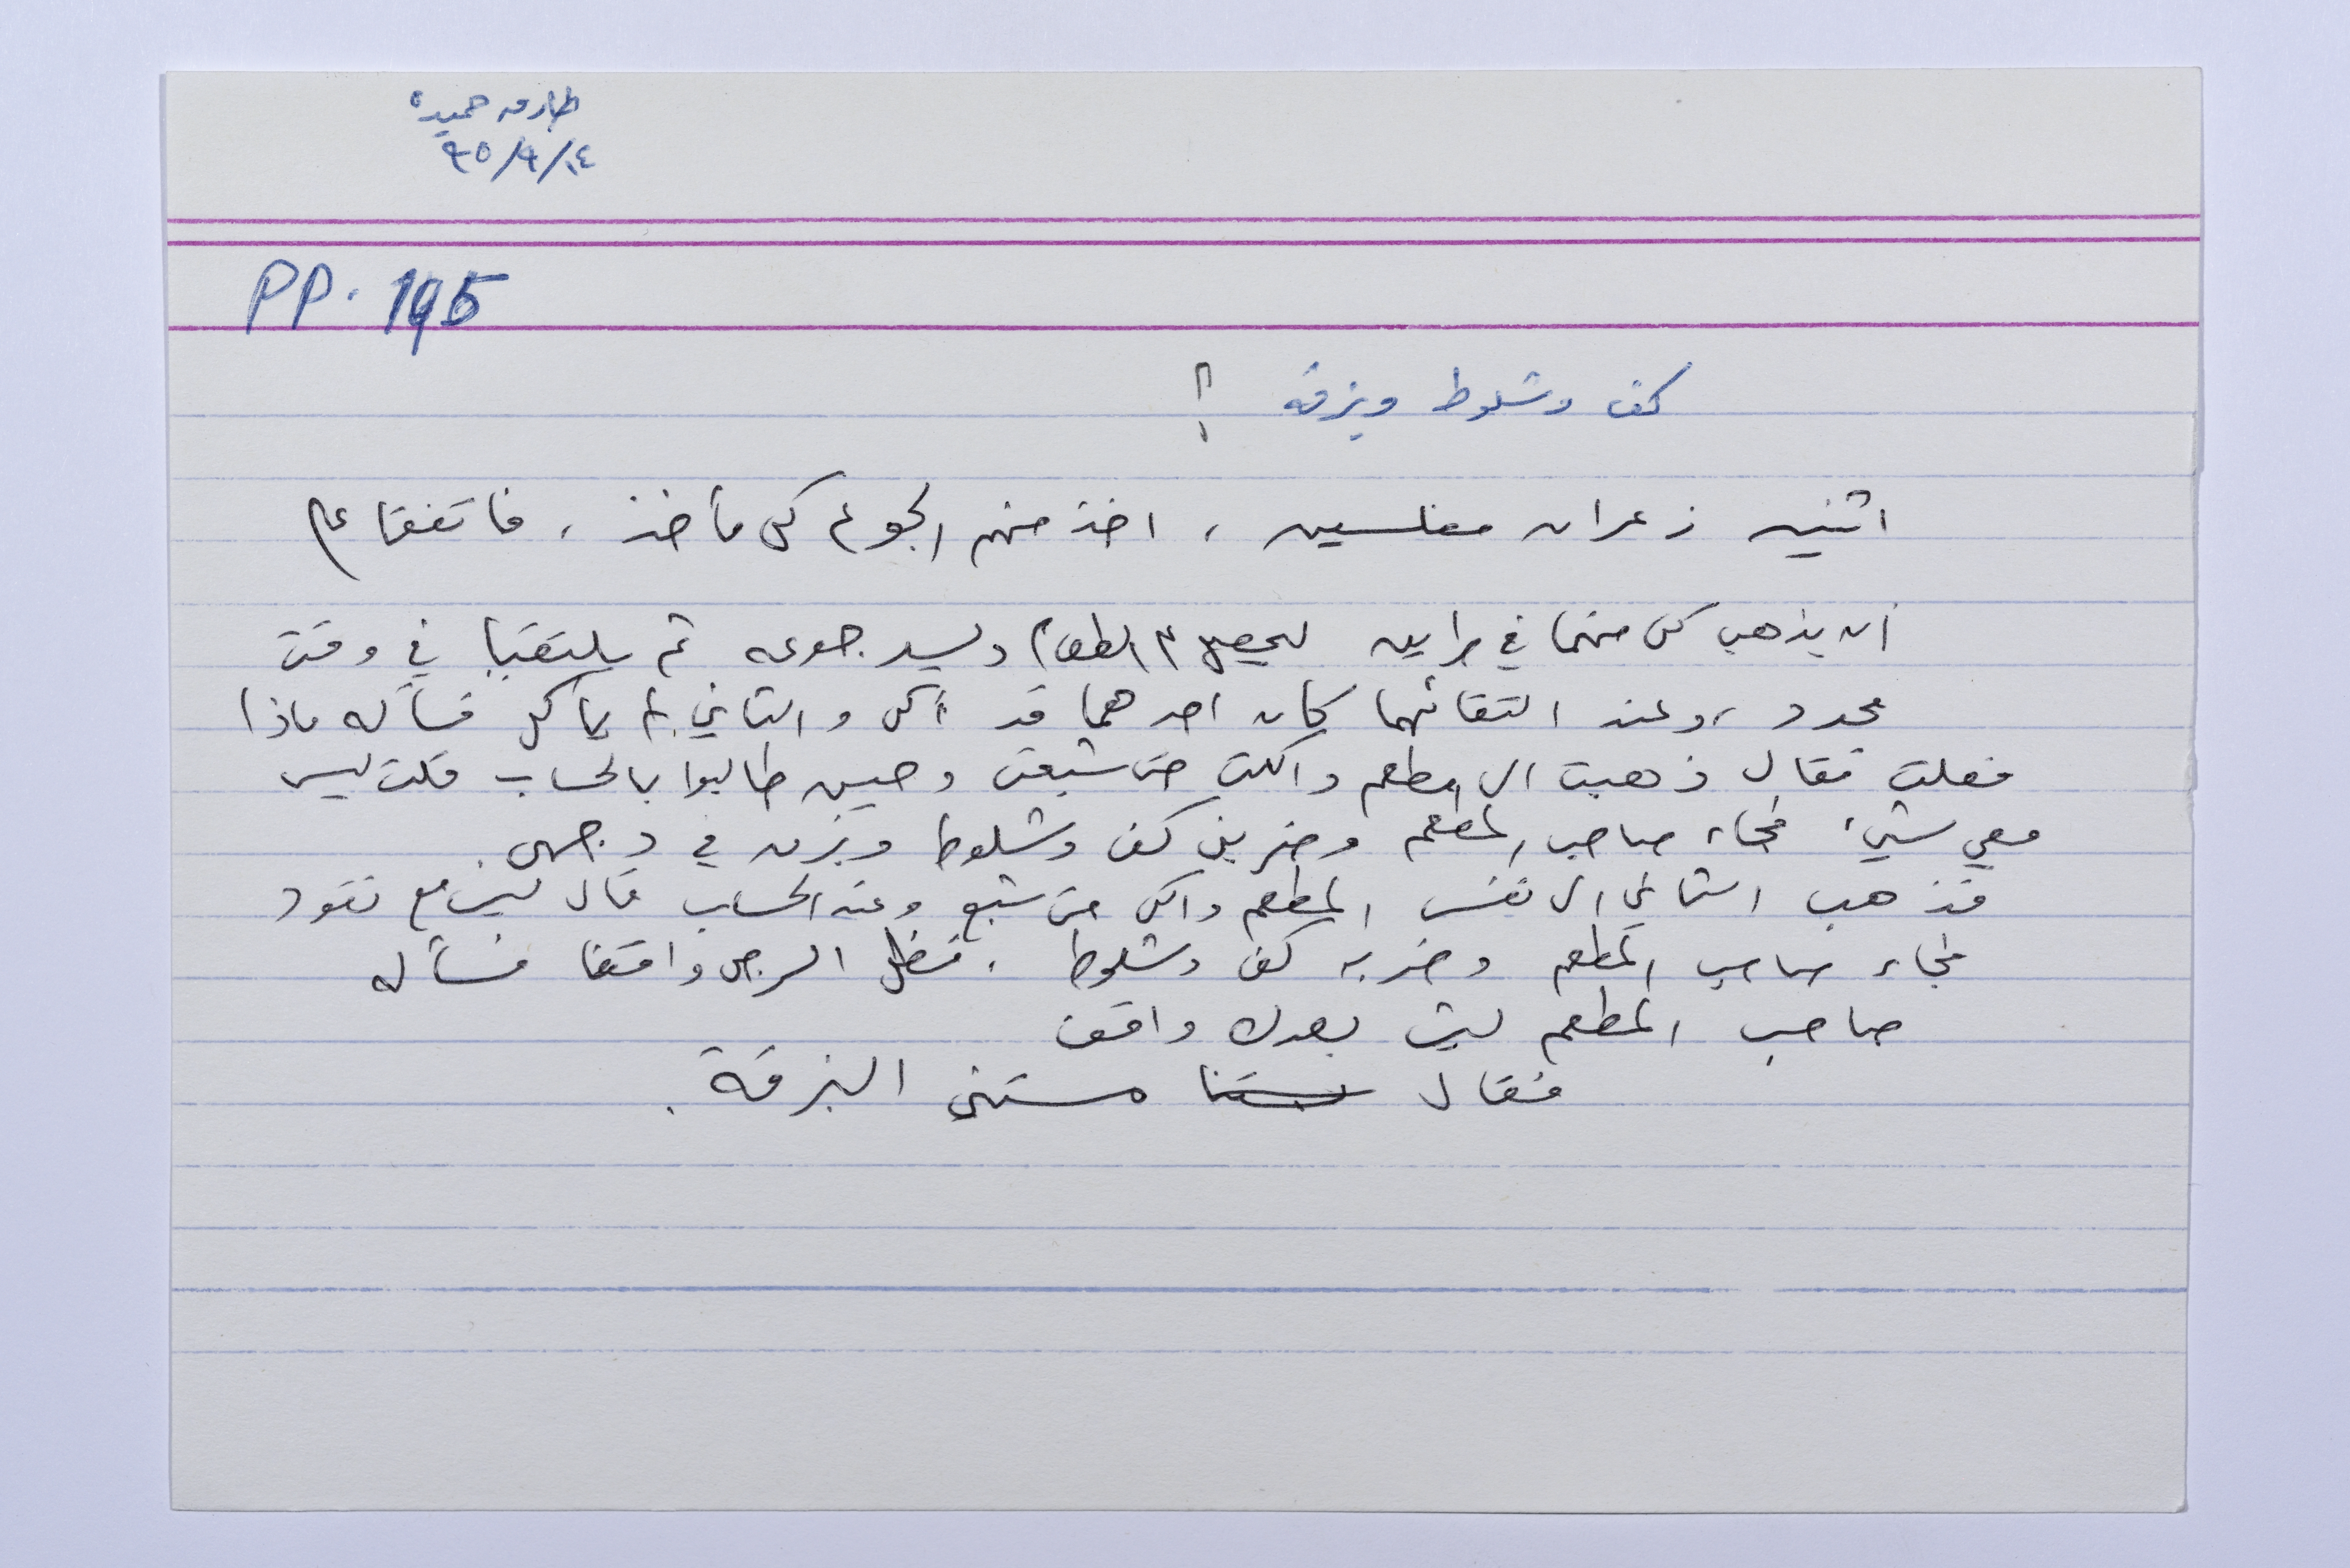 طارق حميده
١٤/٩/٩٥
PP. 195
كف وشلوط وبزقه ؟
اثنين زعران مفلسين ، اخذ منهم الجوع كل مأخذ ، فاتفقا على
أن يذهب كل منهما في طريق ليحصل على الطعام ويسد جوعه ثم يلتقيا في وقت
محدد ، وعند التقائهما كان احدهما قد أكل والثاني لم يأكل فسأله ماذا
فعلت فقال ذهبت الى المطعم واكلت حتى شبعت وحين طالبوا بالحساب قلت ليس
معي شيء فجاء صاحب المطعم وضربني كف وشلوط وبزق في وجهي .
فذهب الثاني الى نفس المطعم واكل حتى شبع وعند الحساب قال ليس معي نقود
فجاء صاحب المطعم وضربه كف وشلوط . فظل الرجل واقفا فسأله
صاحب المطعم ليش بعدك واقف
فقال مستني البزقة .